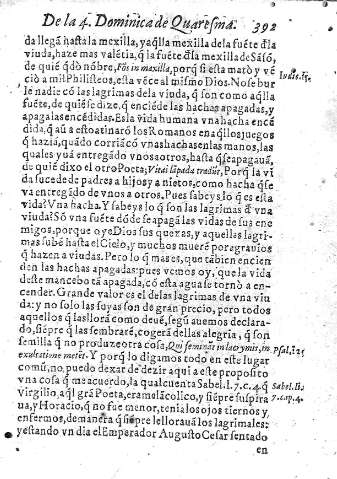 De la 4. Dominica de Quaresma. 392
da llegā hasta la mexilla, y aq̃lla mexilla de la fuēte d̃la
viuda, haze mas valētia, q̃ la fuēte d̃ la mexilla de Sāsō,
de quiē q̃dò nōbre, Fōs in maxilla, porq̃ si esta matò y vē
ciò a mil Philisteos, esta vēce al mismo Dios. No se bur
le nadie cō las lagrimas de la viuda, q̃ son como aq̃lla
fuēte, de quiē se dize, q̃ enciēde las hachas apagadas, y
apaga las encēdidas. Es la vida humana vna hacha encē
dida, q̃ aū a esto atinarō los Romanos en aq̃llos juegos
q̃ hazià, quādo corriā cō vnas hachas en las manos, las
quales yuā entregādo vnos a otros, hasta q̃ se apagauā,
de quiē dixo el otro Poeta, Vitai lāpada tradūt, Porq̃ la vi
da sucede de padres a hijos y a nietos, como hacha q̃ se
va entregādo de vnos a otros. Pues sabeys lo q̃ es esta
vida? Vna hacha. Y sabeys lo q̃ son las lagrimas d̃ vna
viuda? Sō vna fuēte dōde se apagā las vidas de sus ene
migos, porque oye Dios sus quexas, y aquellas lagri-
mas subē hasta el Cielo, y muchos muerē por agrauios
q̃ hazen a viudas. Pero lo q̃ mas es, que tābien encien
dan las hachas apagadas: pues vemos oy, que la vida
deste mancebo tā apagada, cō esta agua se tornò a en-
cender. Grande valor es el de las lagrimas de vna viu
da: y no solo las suyas son de gran precio, pero todos
aquellos q̃ las llorā como deuē, segū auemos declara-
do, siēpre q̃ las sembrarē, cogerā dellas alegria, q̃ son
semilla q̃ no produze otra cosa, Qui seminãt in lacrymis, in
exultatione metēt. Y porq̃ lo digamos todo en este lugar
comū, no puedo dexar de dezir aqui a este proposito
vna cosa q̃ me acuerdo, la qual cuenta Sabel. l. 7. c. 4. q̃
Virgilio, aq̃l grã Poeta, era melācolico, y siēpre suspira
ua, y Horacio, q̃ no fue menor, tenia los ojos tiernos y
enfermos, de manera q̃ siēpre le llorauā los lagrimales:
y estando vn dia el Emperador Augusto Cesar sentado
en
Iudic.
Psal.
Sabel. li.
7. cap. 4.